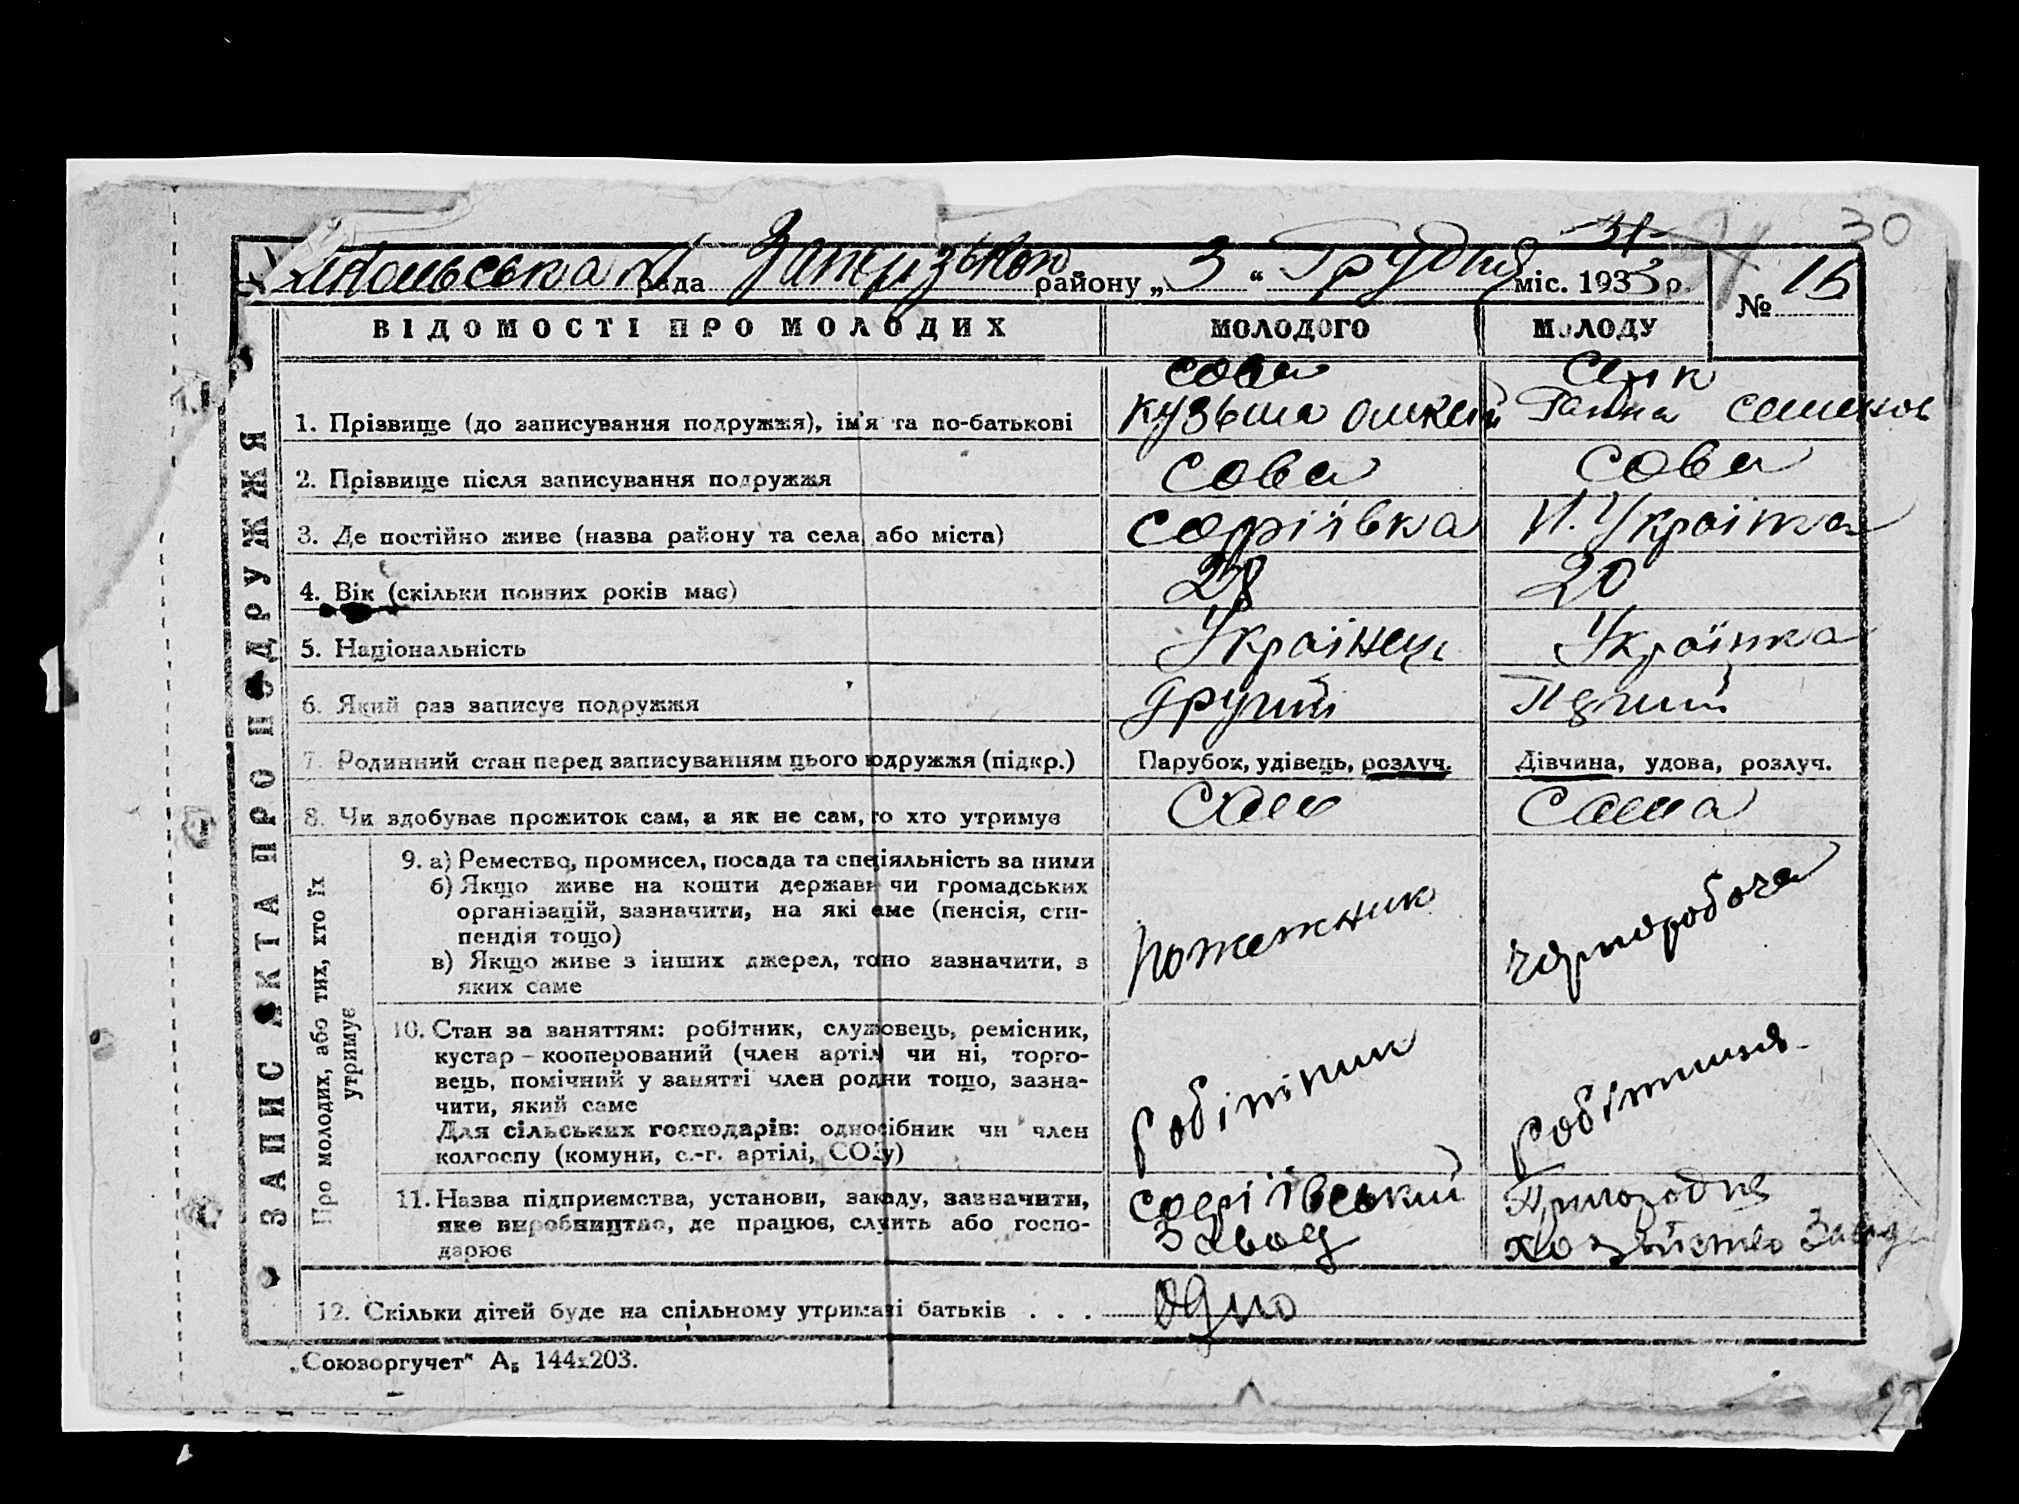 30
рада району „ 3 “ Грудня міс. 1933 р. № 15
ВІДОМОСТІ ПРО МОЛОДИХ МОЛОДОГО МОЛОДУ
ЗАПИС АКТА ПРО ПОДРУЖЖЯ
Сова
1. Прізвище (до записування подружжя), ім'я та по-батькові Кузьма Ганна
2. Прізвище після записування подружжя Сова Сова
3. Де постійно живе (назва району та села або міста) Софіївка Українка
4. Вік (скільки повних років має) 28 20
5. Національність Українець Українка
6. Який раз записує подружжя другий
7. Родинний стан перед записуванням цього подружжя (підкр.) Парубок, удівець, розлуч. Дівчина, удова, розлуч.
8. Чи здобуває прожиток сам, а як не сам, то хто утримує Сам Сама
Про молодих, або тих, хто їх утримує
9. а) Ремество, промисел, посада та спеціяльність за ними
б) Якщо живе на кошти держави чи громадських
організацій, зазначити, на які саме (пенсія, сти-
пендія тощо)
в) Якщо живе з інших джерел, точно зазначити, з
яких саме
пожежник чорнороботча
10. Стан за заняттям: робітник, службовець, ремісник,
кустар – кооперований (член артілі чи ні, торго-
вець, помічний у занятті член родини тощо, зазна-
чити, який саме
Для сільських господарів: одноосібник чи член
колгоспу (комуни, с.-г. артілі, СОЗу)
робітник робітниця
11. Назва підприємства, установи, закладу, зазначити,
яке виробництво, де працює, служить або госпо-
дарює
софіївський
завод
12. Скільки дітей буде на спільному утриманні батьків . . . одно
„Союзоргучет“ А₅ 144х203.